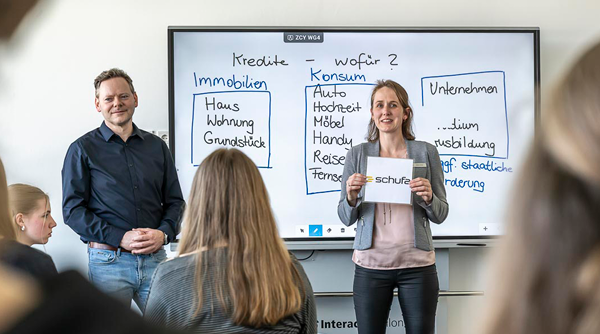 ZCY WG4
Kredite – wofür?
Immobilien
Haus
Wohnung
Grundstück
Konsum
Auto
Hochzeit
Möbel
Handy
Reise
Unternehmen
...dium
ggf. staatliche
schufa
Interac